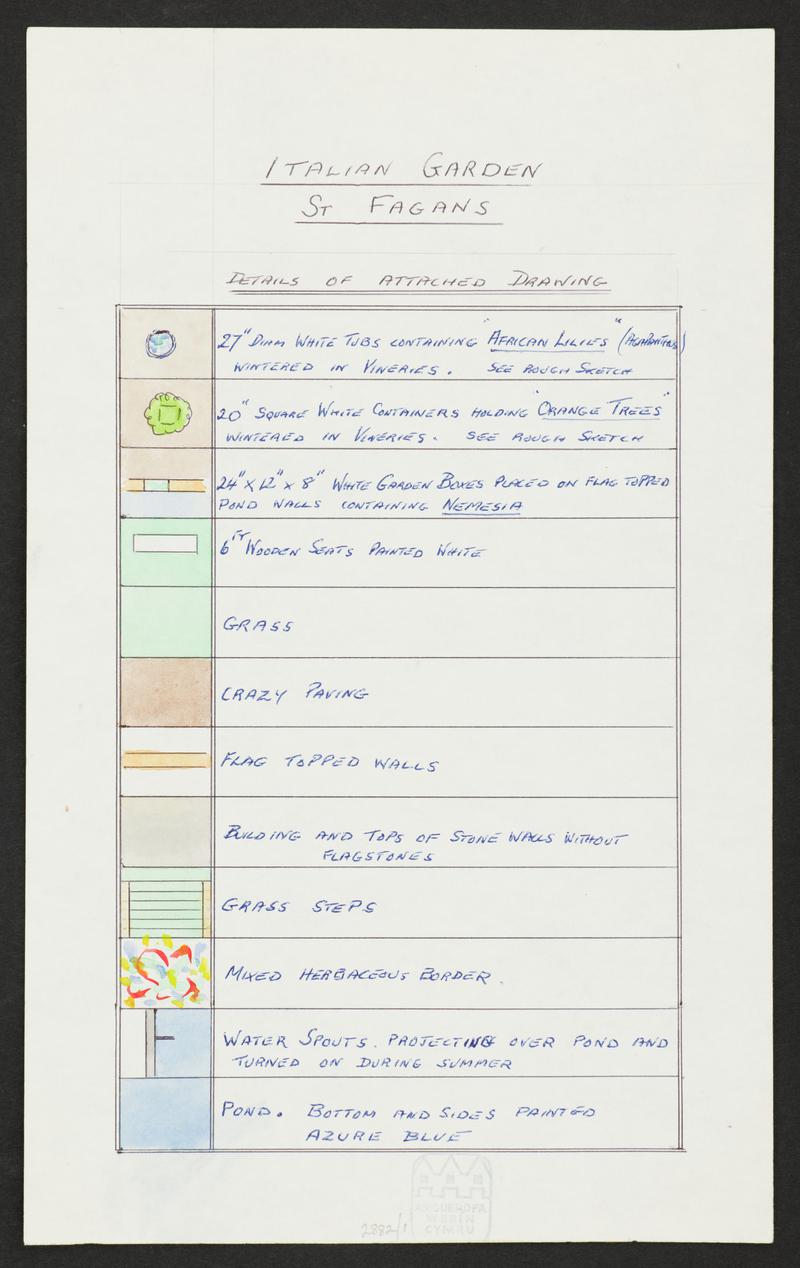 ITALIAN GARDEN
ST FAGANS
DETAILS OF ATTACHED DRAWING
27" DIAM WHITE TUBS CONTAINING "AFRICAN LILIES" (AGAPANTHUS)
WINTERED IN VINERIES. SEE ROUGH SKETCH
20" SQUARE WHITE CONTAINERS HOLDING "ORANGE TREES"
WINTERED IN VINERIES. SEE ROUGH SKETCH
24" X 12" X 8" WHITE GARDEN BOXES PLACED ON FLAG TOPPED
POND WALLS CONTAINING NEMESIA
6FT WOODEN SEATS PAINTED WHITE
GRASS
CRAZY PAVING
FLAG TOPPED WALLS
BUILDING AND TOPS OF STONE WALLS WITHOUT
FLAGSTONES
GRASS STEPS
MIXED HERBACEOUS BORDER.
WATER SPOUTS. PROJECTING OVER POND AND
TURNED ON DURING SUMMER
POND. BOTTOM AND SIDES PAINTED
AZURE BLUE
AMGUEDDFA
WERIN
CYMRU
2882/1